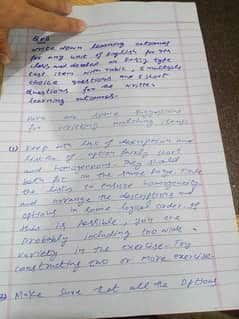 Q.3
Write down learning outcomes
for any unit of English for 7th
class and develop an Essay type
test item with rubric, 5 multiple
choice questions and 5 short
questions for the written
learning outcomes.
Here are some suggestions
for writing matching items
(1) Keep the list of description and
the list of option fairly short
and homogeneous. They should
both fit on the same page. Title
the lists to ensure homogeneity
and arrange the descriptions and
options in some logical order. If
this is possible, you are
probably including too wide a
variety in the exercise. Try
constructing two or more exercise.
2) Make Sure that all the Options